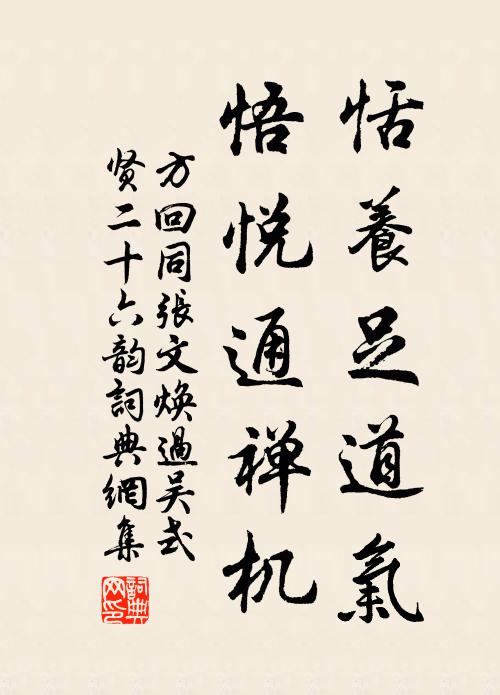 恬養足道氣
悟悦通禅机
方回同張文焕過吴式
贤二十六韵詞典網集
詞典网印